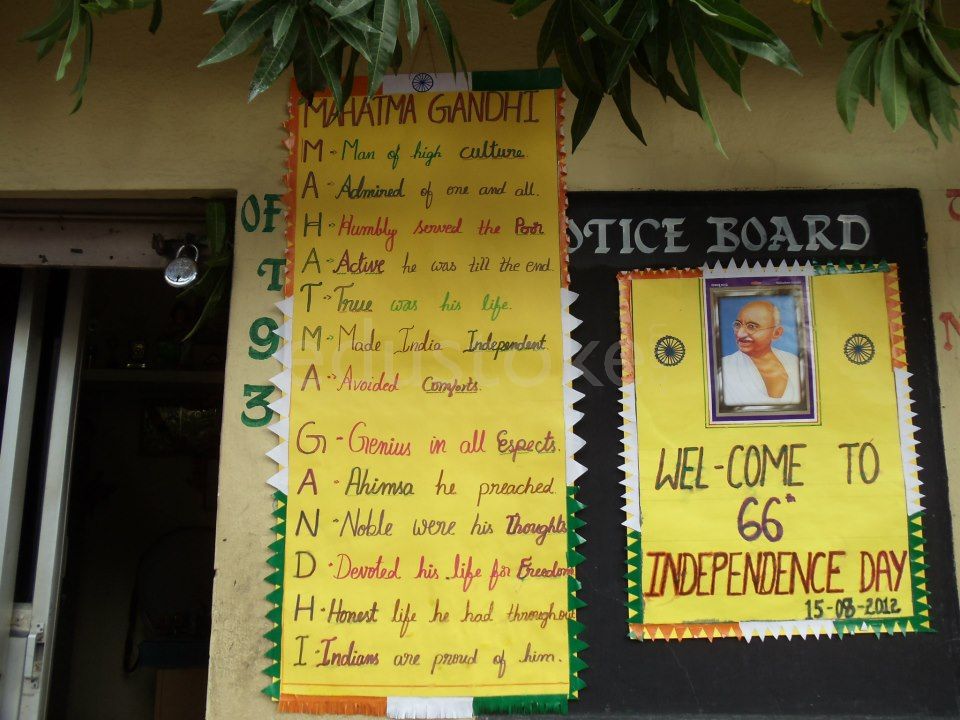 MAHATMA GANDHI
M - Man of high culture.
A - Admired of one and all.
H - Humbly served the Poor
A - Active he was till the end.
T - True was his life.
M - Made India Independent.
A - Avoided Comforts.
G - Genius in all Espects.
A - Ahimsa he preached.
N - Noble were his Thoughts
D - Devoted his life for Freedom
H - Honest life he had throughout
I - Indians are proud of him.
OF
T
9
3
OTICE BOARD
WEL-COME TO
66th
INDEPENDENCE DAY
15-08-2012
edustoke